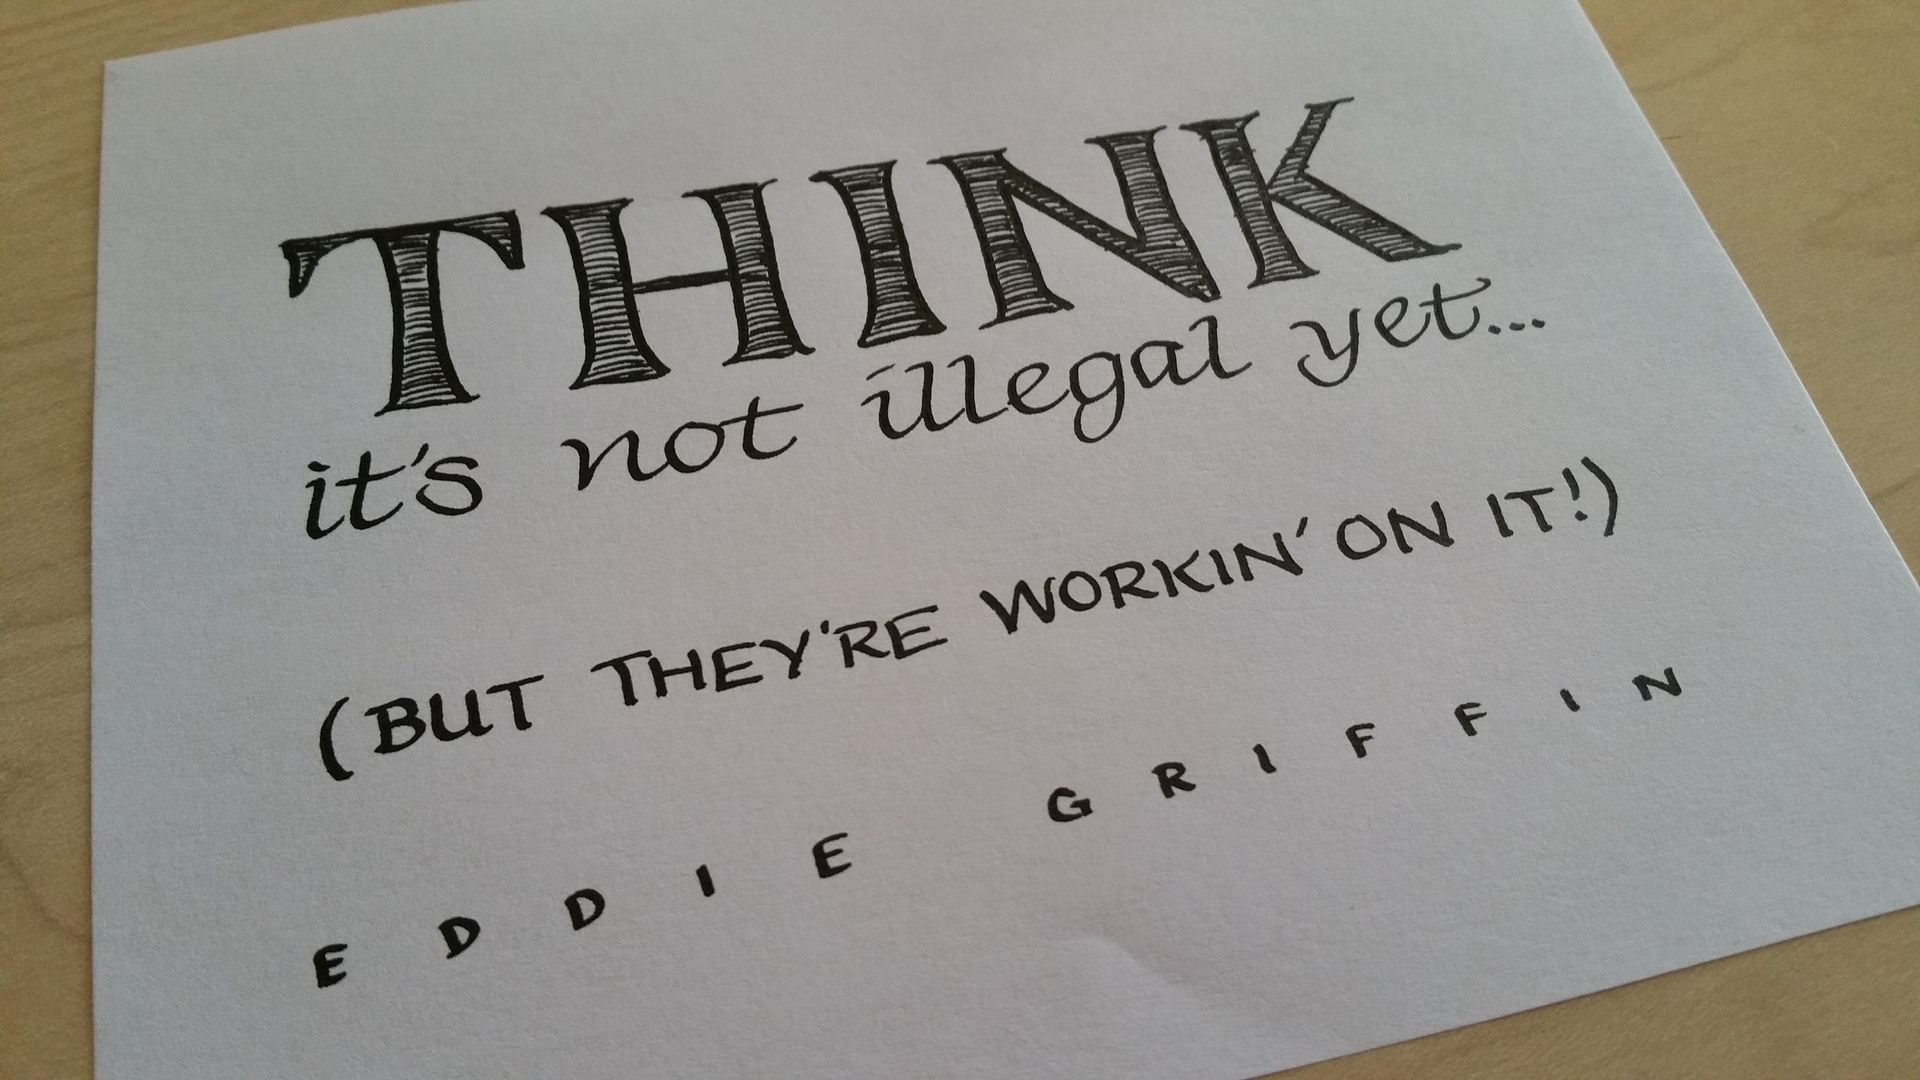 THINK
it's not illegal yet...
(BUT THEY'RE WORKIN' ON IT!)
EDDIE GRIFFIN